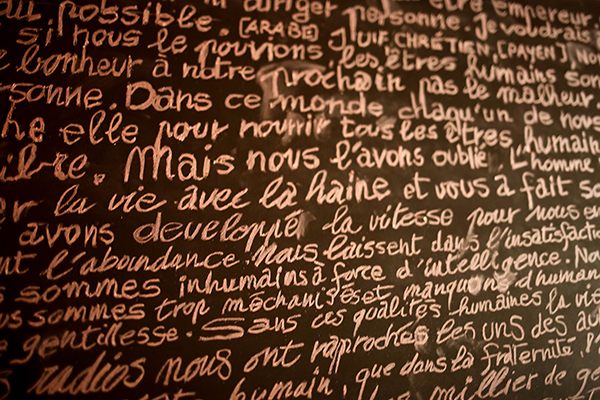 au possible. diriger personne. être empereur,
si nous le pouvions [ARABE] JUIF CHRÉTIEN, [PAYEN] Je voudrais
bonheur à notre prochain pas le malheur les êtres humains son
sonne. Dans ce monde chaqu'un de nous
he elle pour nourrir tous les êtres humain
ibre. Mais nous l'avons oublié. L'homme
er la vie avec la haine et vous a fait so
avons developpé la vitesse pour nous en
nt l'abondance nous laissent dans l'insatisfacti
s sommes inhumains à force d'intelligence. No
us sommes trop méchanisés et manquons d'human
e gentillesse. Sans ces qualités humaines la vie
radios nous ont rapprochés les uns des au
humain, que dans la fraternité, l
millier de